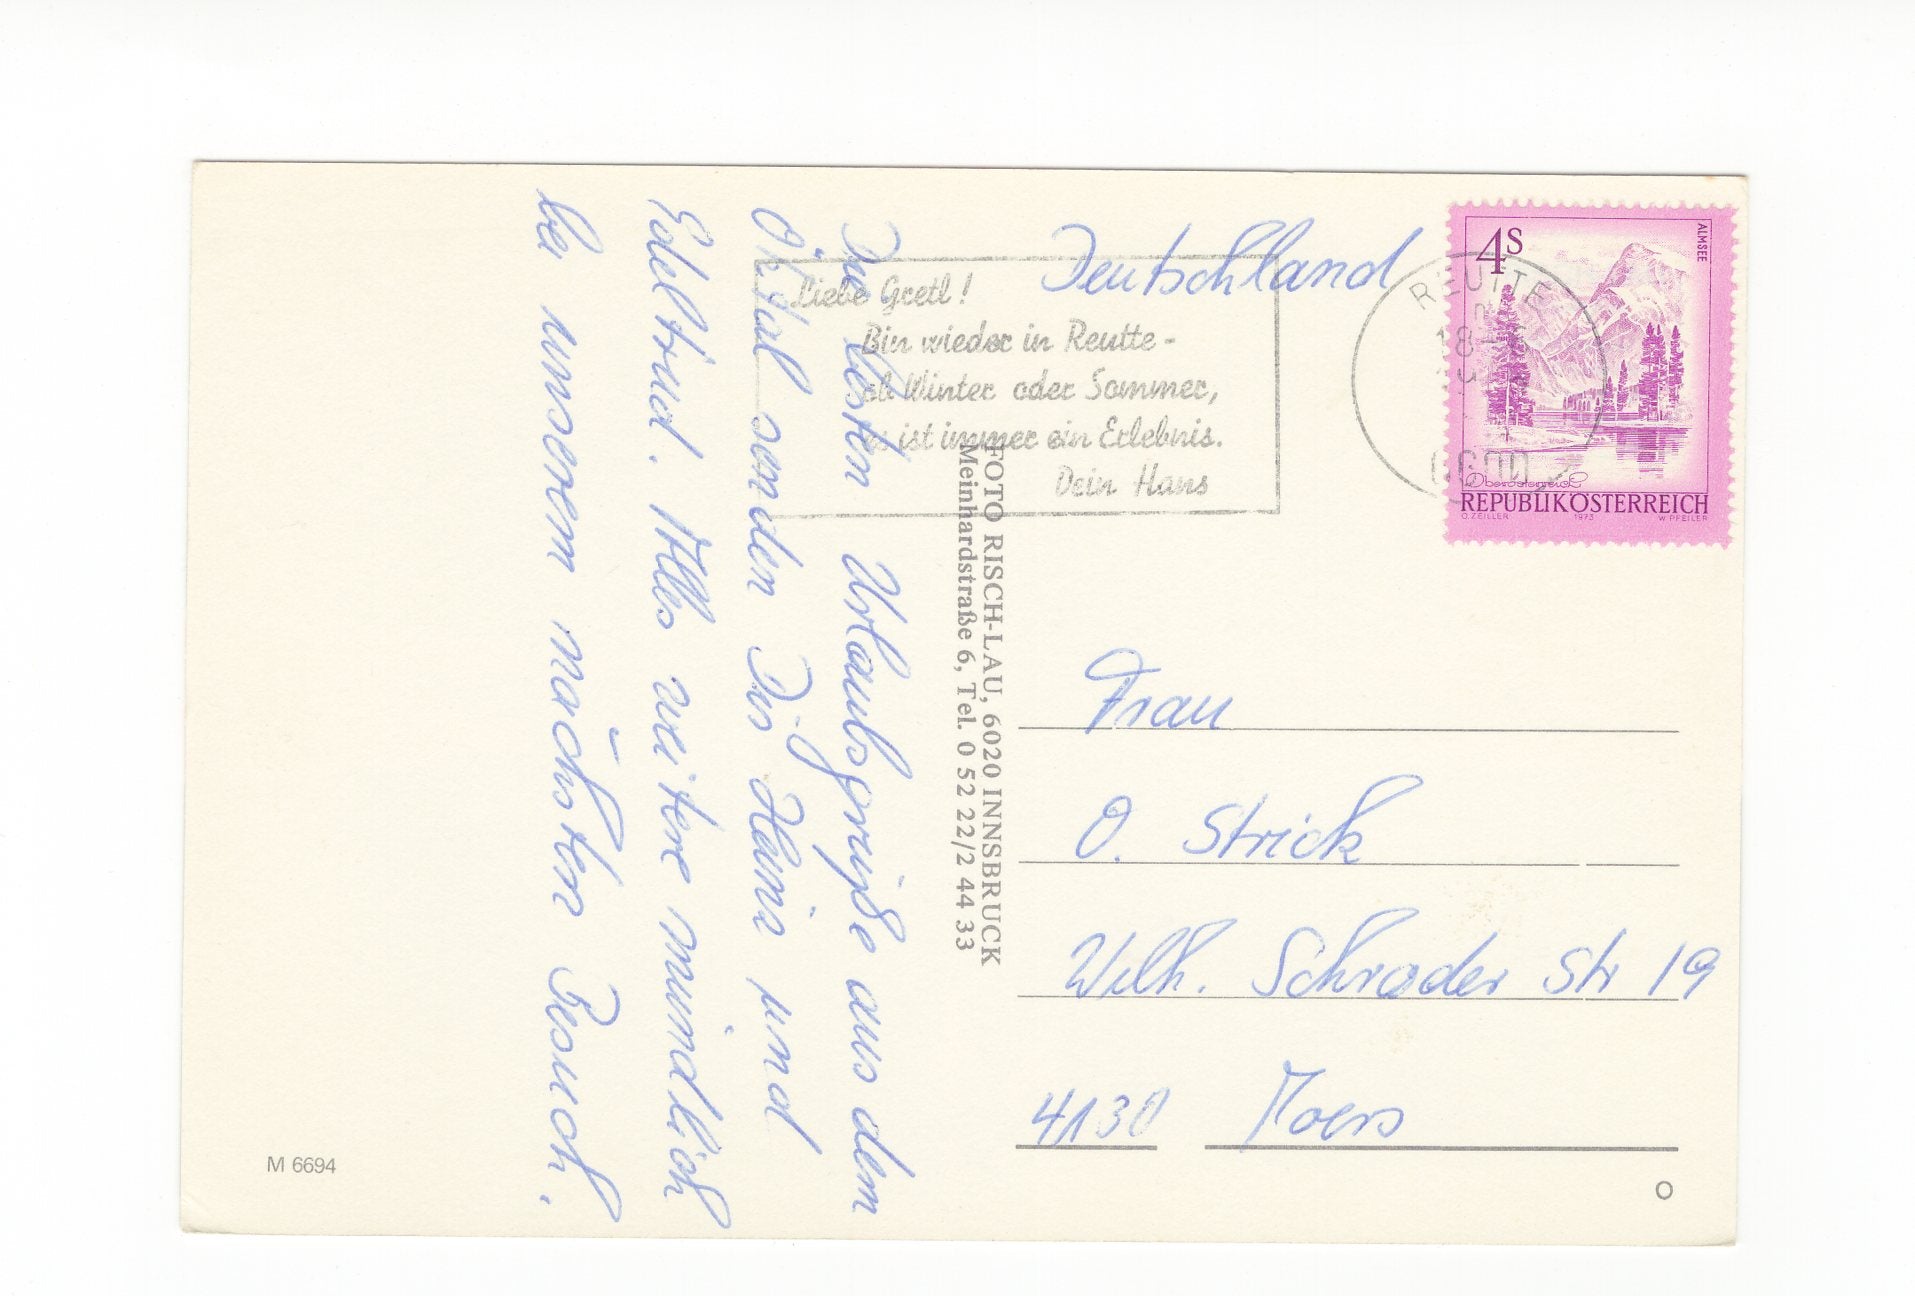 Die besten Urlaubsgrüße aus dem
Ötztal senden Dir Heinz und
Edeltrud. Alles weitere mündlich
bei unserem nächsten Besuch.
Liebe Gretl!
Bin wieder in Reutte -
ob Winter oder Sommer,
es ist immer ein Erlebnis.
Dein Hans
Deutschland
REUTTE
18
6600
4S
ALMSEE
Oberösterreich
REPUBLIK ÖSTERREICH
O. ZEILLER 1973 W. PFEILER
FOTO RISCH-LAU, 6020 INNSBRUCK
Meinhardstraße 6, Tel. 0 52 22/2 44 33
Frau
O. Strick
Wilh. Schroder Str 19
4130 Moers
M 6694
O